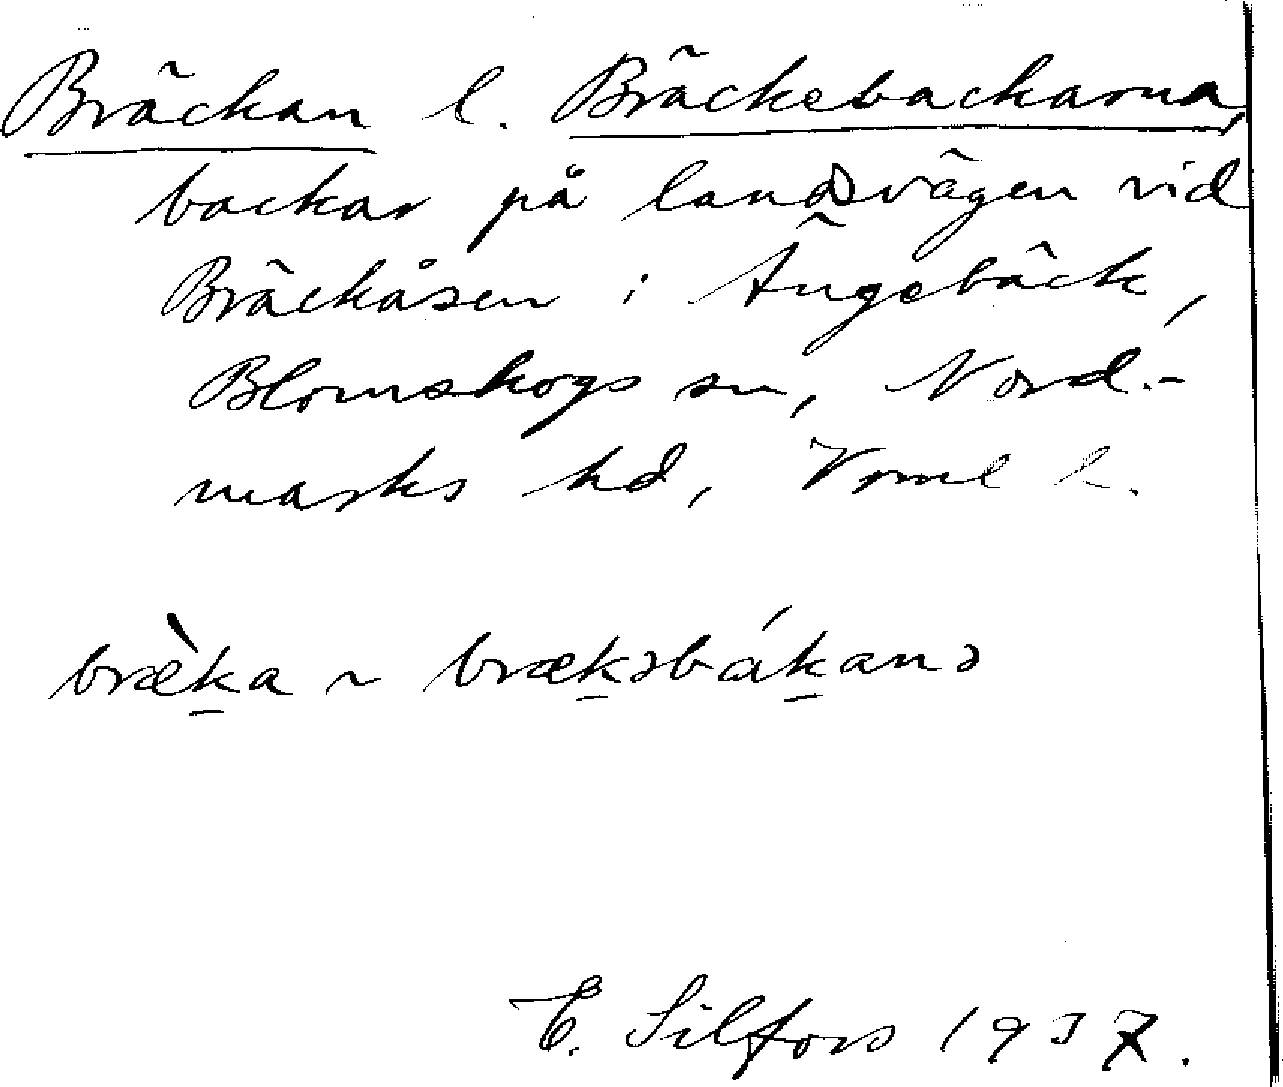 Bräckan l. Bräckebackarna,
backar på landsvägen vid
Bräckåsen i Ängebäck,
Blomskogs sn, Nord-
marks hd, Vrml l.
bræ̀ḵa ~ bræḵəbáḵanə
E. Silfors 1937.